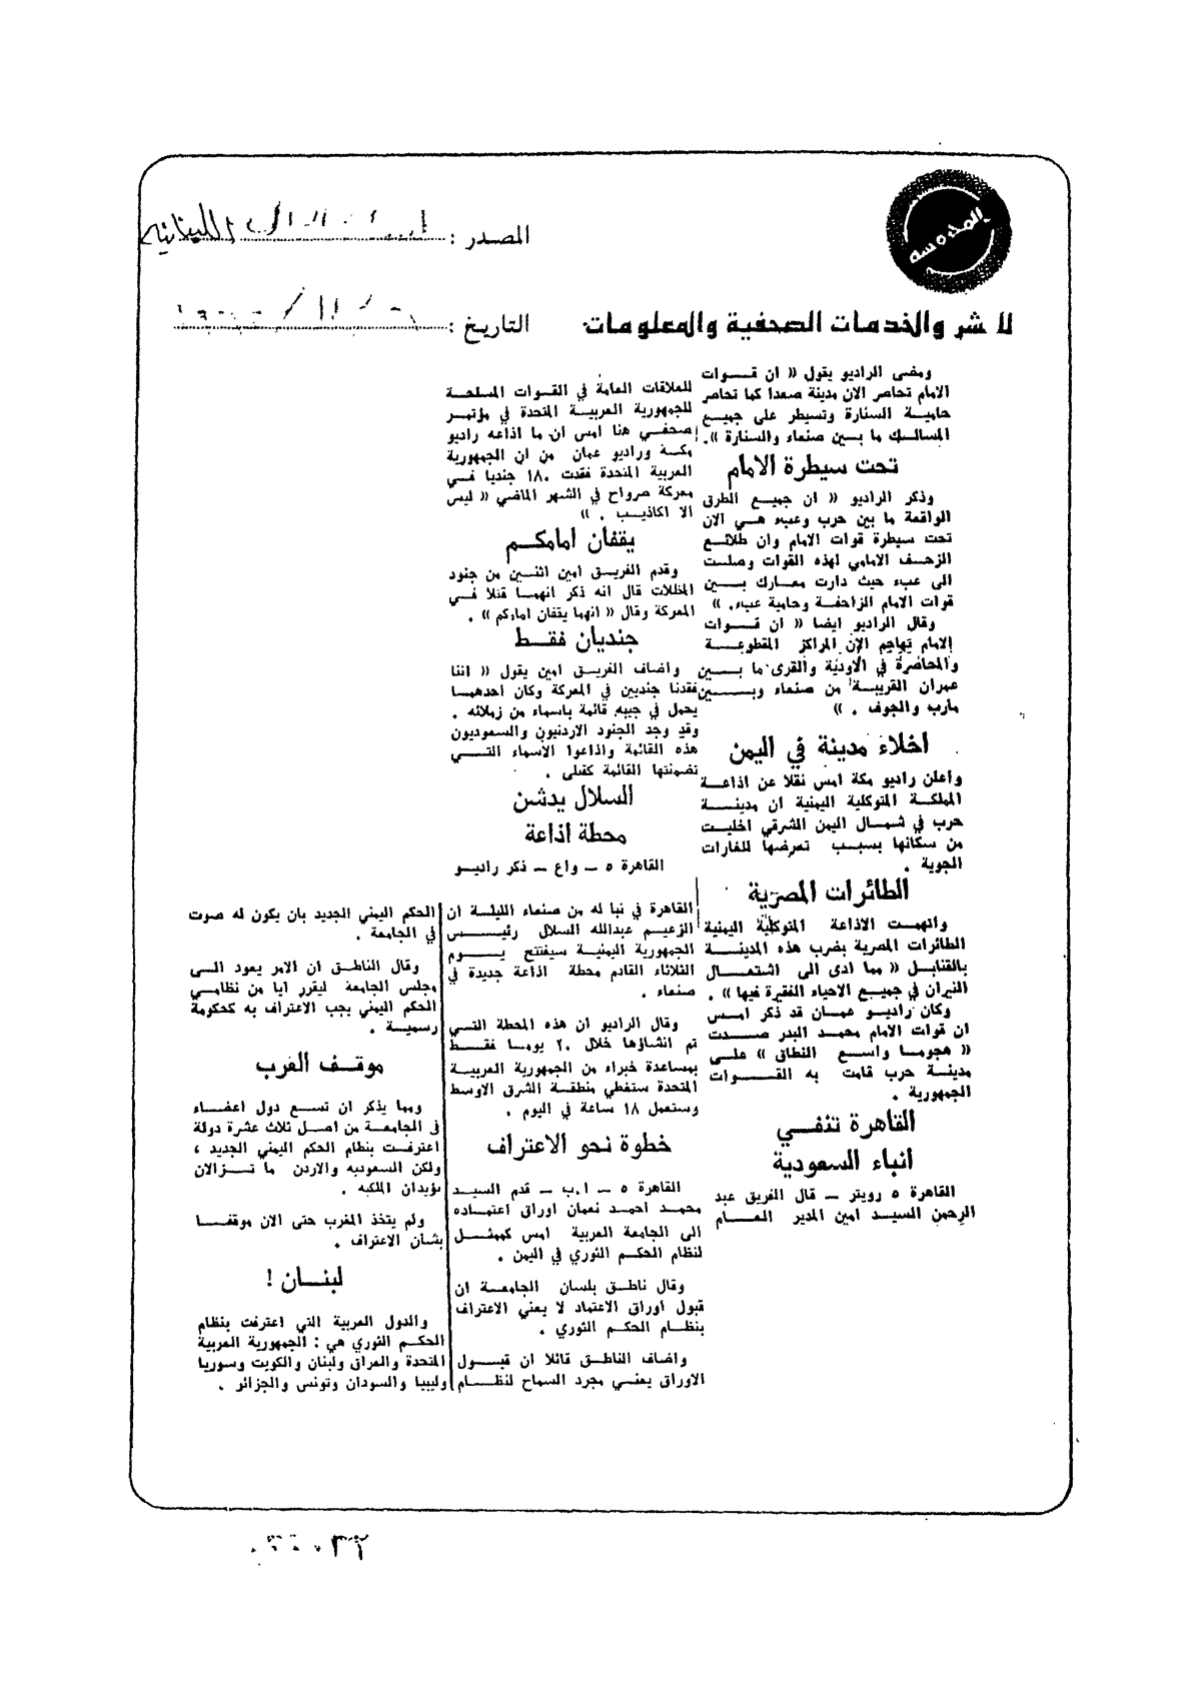 المدرسه
المصدر : اللبنانيه
للنشر والخدمات الصحفية والمعلومات
التاريخ :
ومضى الراديو يقول « ان قـــوات
الامام تحاصر الان مدينة صعدا كما تحاصر
حاميـــة السنارة وتسيطر على جميـع
المسالـك ما بـــين صنعاء والسنارة ».
تحت سيطرة الامام
وذكر الراديو « ان جميـع الطرق
الواقعة ما بين حرب وعبء هـي الان
تحت سيطرة قوات الامام وان طلائـع
الزحـف الامامي لهذه القوات وصلـت
الى عبء حيث دارت معـارك بـــين
قوات الامام الزاحفـة وحامية عبء. »
وقال الراديو ايضا « ان قـــوات
الامام تهاجم الان المراكز المقطوعـــة
والمحاصرة في الاودية والقرى ما بـــين
عمران القريبـة من صنعاء وبـــــين
مأرب والجوف . »
اخلاء مدينة في اليمن
واعلن راديو مكة امس نقلا عن اذاعـة
المملكـة المتوكلية اليمنية ان مدينـــة
حرب في شمـــال اليمن الشرقي اخليـت
من سكانها بسبـــب تعرضها للغارات
الجوية .
الطائرات المصرية
واتهمت الاذاعة المتوكلية اليمنية
الطائرات المصرية بضرب هذه المدينـــة
بالقنابل « مما ادى الى اشتعـــال
النيران في جميـع الاحياء الفقيرة فيها » .
وكان راديـو عمـــان قد ذكر امـس
ان قوات الامام محمـد البدر صـــدت
« هجومـا واسـع النطاق » علـى
مدينـة حرب قامت به القـــوات
الجمهورية .
القاهرة تنفـــي
انباء السعودية
القاهرة ٥ رويتر ـ قال الفريق عبد
الرحمن السيـد امين المدير العـــام
للعلاقات العامة في القوات المسلحـة
للجمهورية العربيـة المتحدة في مؤتمر
صحفي هنا امس ان ما اذاعه راديو
مكـة وراديو عمان من ان الجمهورية
العربية المتحدة فقدت ١٨٠ جنديا فـي
معركة صرواح في الشهر الماضي « ليس
الا اكاذيـب . »
يقفان امامكـــم
وقدم الفريـق امين اثنـين من جنود
المظلات قال انه ذكر انهمـا قتلا فـي
المعركة وقال « انهما يقفان اماركم » .
جنديان فقـــط
واضاف الفريـق امين يقول « اننا
فقدنا جنديين في المعركة وكان احدهمـا
يحمل في جيبه قائمة باسماء من زملائه .
وقد وجد الجنود الاردنيون والسعوديون
هذه القائمة واذاعوا الاسماء التـــي
تضمنتها القائمة كقتلى .
السلال يدشن
محطة اذاعة
القاهرة ٥ ـ واع ـ ذكر راديـو
القاهرة في نبا له من صنعاء الليلـة ان
الزعيـم عبدالله السلال رئيـــس
الجمهورية اليمنيـة سيفتتح يـــوم
الثلاثاء القادم محطة اذاعة جديدة في
صنعاء .
وقال الراديو ان هذه المحطة التـي
تم انشاؤها خلال ٢٠ يومـا فقـــط
بمساعدة خبراء من الجمهورية العربيـة
المتحدة ستغطي منطقـة الشرق الاوسط
وستعمل ١٨ ساعة في اليوم .
خطوة نحو الاعتراف
القاهرة ٥ ـ ا.ب ـ قدم السيـــد
محمـد احمـد نعمان اوراق اعتمـاده
الى الجامعة العربية امس كممثـــل
لنظام الحكـم الثوري في اليمن .
وقال ناطـق بلسان الجامعـة ان
قبول اوراق الاعتماد لا يعني الاعتراف
بنظـام الحكـم الثوري .
واضاف الناطـق قائلا ان قبـــول
الاوراق يعنـي مجرد السماح لنظـــام
الحكم اليمني الجديد بان يكون له صوت
في الجامعة .
وقال الناطـق ان الامر يعود الـى
مجلس الجامعة ليقرر ايا من نظامـي
الحكم اليمني يجب الاعتراف به كحكومة
رسميـة .
موقـــف الغرب
ومما يذكر ان تسـع دول اعضـاء
في الجامعـة من اصـل ثلاث عشرة دولة
اعترفـت بنظام الحكم اليمني الجديد ،
ولكن السعوديه والاردن ما تـــزالان
تؤيدان الملكيه .
ولم يتخذ المغرب حتى الان موقفـــا
بشأن الاعتراف .
لبنـــان !
والدول العربية التي اعترفت بنظام
الحكـم الثوري هي : الجمهورية العربية
المتحدة والعراق ولبنان والكويت وسوريا
وليبيا والسودان وتونس والجزائر .